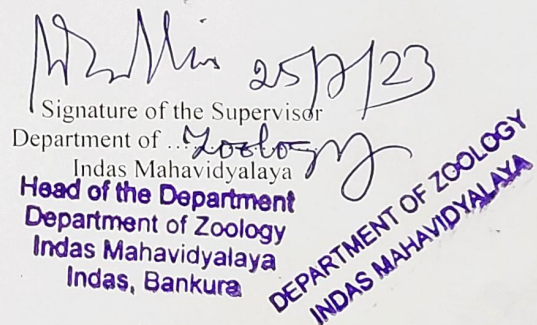 25/7/23
Signature of the Supervisor
Department of ....Zoology
Indas Mahavidyalaya
Head of the Department
Department of Zoology
Indas Mahavidyalaya
Indas, Bankura
DEPARTMENT OF ZOOLOGY
INDAS MAHAVIDYALAYA